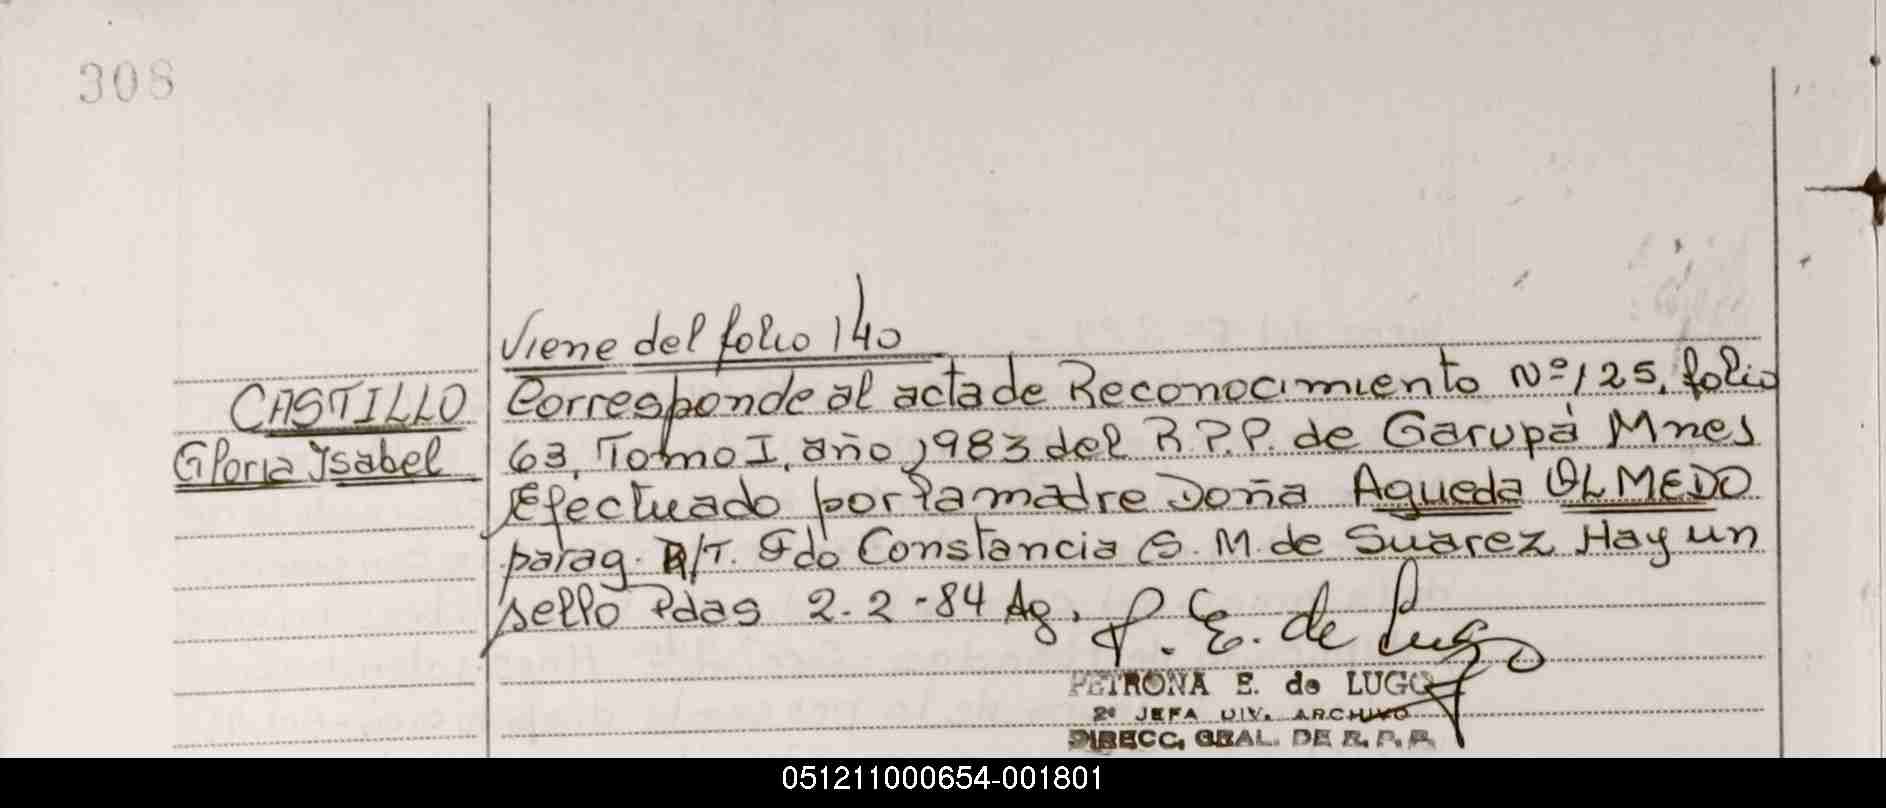 308
Viene del folio 140
CASTILLO
Gloria Ysabel
Corresponde al acta de Reconocimiento Nº 125, folio
63, Tomo I, año 1983 del R.P.P. de Garupá Mnes
Efectuado por la madre Doña Agueda OLMEDO
parag. /T. Fdo Constancia S. M. de Suarez Hay un
sello Pdas 2-2-84 Ag.
P. E. de Lugo
PETRONA E. de LUGO
2º JEFA DIV. ARCHIVO
DIRECC. GRAL. DE R. P. P.
051211000654-001801